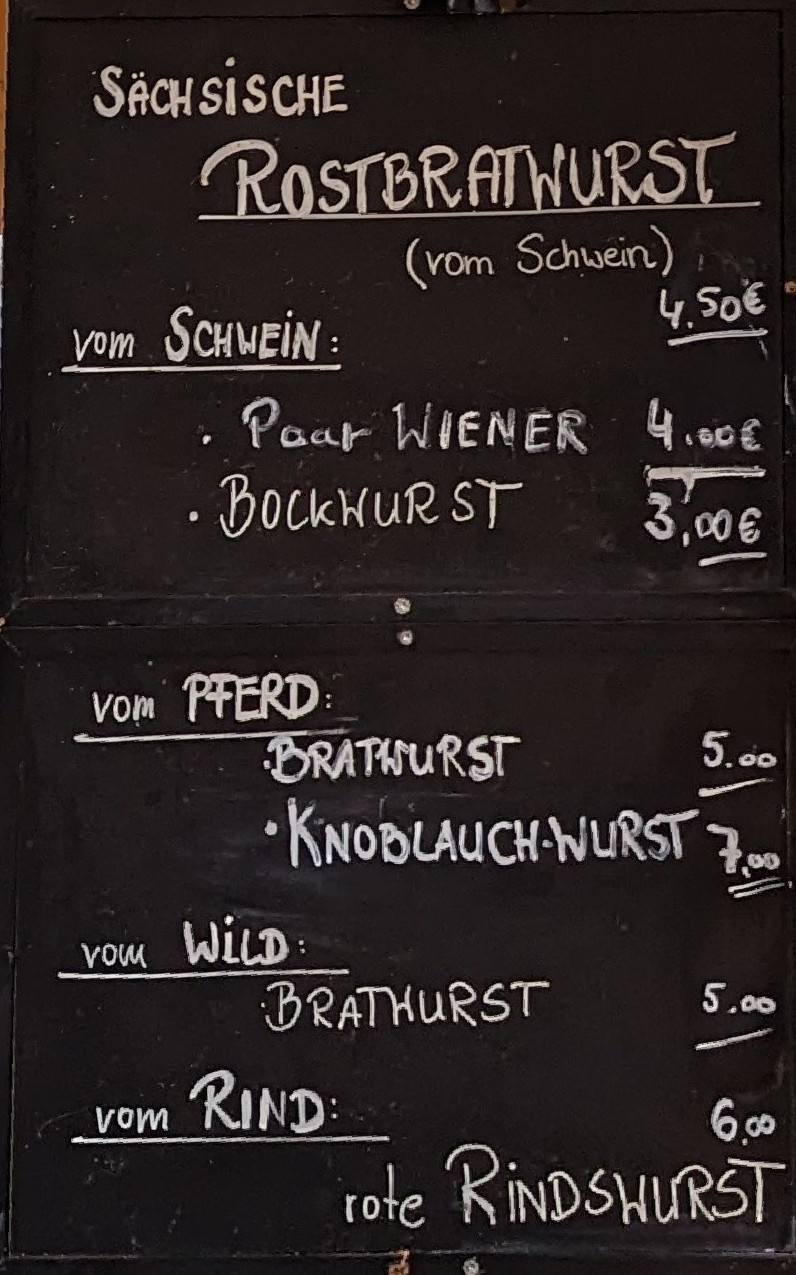 SÄCHSISCHE
ROSTBRATWURST
(vom Schwein)
4.50€
vom SCHWEIN:
. Paar WIENER 4.00€
. BOCKWURST 3,00€
vom PFERD:
. BRATWURST 5.00
. KNOBLAUCH-WURST 7,00
vom WILD:
. BRATWURST 5.00
vom RIND: 6,00
rote RINDSWURST